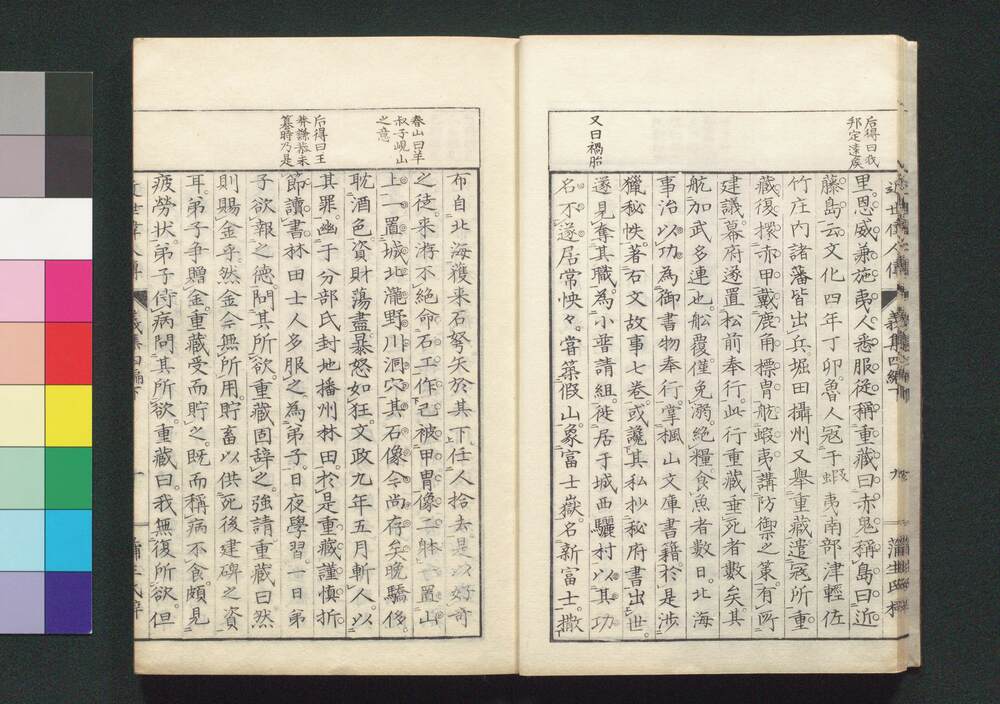 后得曰我
邦定遠矦
又曰禍胎
里。恩威兼施。夷人悉服從。稱重藏曰赤鬼。稱島曰近
藤島云。文化四年丁卯。魯人冦于蝦夷。南部津輕佐
竹庄內諸藩皆出兵。堀田攝州又舉重藏遣冦所。重
藏復擐赤甲戴鹿角標冑。航蝦夷。講防御之策。有所
建議。幕府遂置松前奉行。此行重藏垂死者數矣。其
航加武多連也。船覆僅免溺。絕糧食魚者數日。北海
事治。以功為御書物奉行。掌楓山文庫書籍。於是涉
獵秘帙。著右文故事七卷。或讒其私抄秘府書出世。
遂見奪其職。為小普請組。徙居于城西驪村。以其功
名不遂。居常怏々。嘗築假山。象富士嶽。名新富士。撒
春山曰羊
叔子峴山
之意
后得曰王
莽謙恭未
篡時乃是
布自北海獲來石弩矢於其下。任人拾去。是以好奇
之徒。來游不絕。命石工作己被甲冑像二躰。一置山
上。一置城北瀧野川洞穴。其石像今尚存矣。晚驕侈。
耽酒色。資財蕩盡。暴怒如狂。文政九年五月斬人。以
其罪。幽于分部氏封地播州林田。於是重藏謹慎折
節讀書。林田士人多服之為弟子。日夜學習。一日弟
子欲報之德。問其所欲。重藏固辭之。強請。重藏曰。然
則賜金乎。然金今無所用。貯畜以供死後建碑之資
耳。弟子爭贈金。重藏受而貯之。既而稱病不食。頗見
疲勞狀。弟子侍病問其所欲。重藏曰。我無復所欲。但